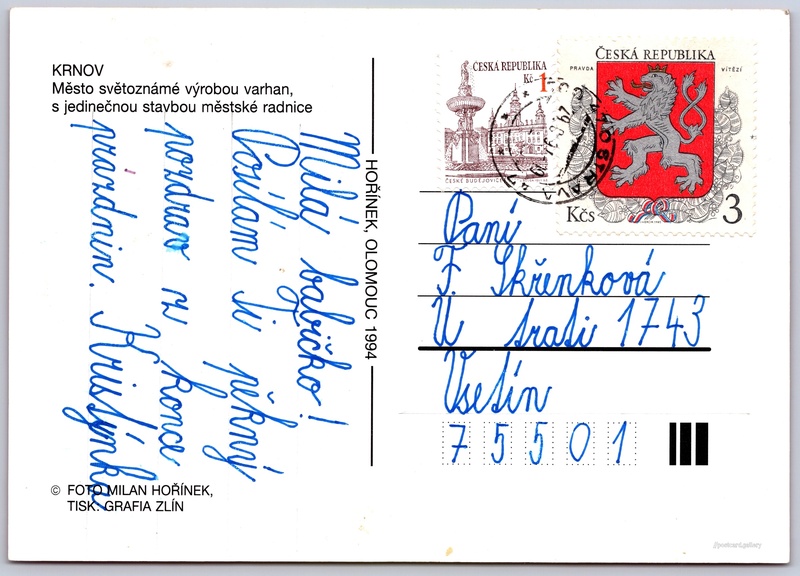 KRNOV
Město světoznámé výrobou varhan,
s jedinečnou stavbou městské radnice
Milá babičko!
Posílám Ti pěkný
pozdrav z konce
prázdnin. Kristýnka
© FOTO MILAN HOŘÍNEK,
TISK: GRAFIA ZLÍN
HOŘÍNEK, OLOMOUC 1994
ČESKÁ REPUBLIKA
Kč 1
ČESKÉ BUDĚJOVICE
ČESKÁ REPUBLIKA
PRAVDA VÍTĚZÍ
Kčs 3
OSTRAVA
Paní
F. Skřenková
U trati 1743
Vsetín
75501